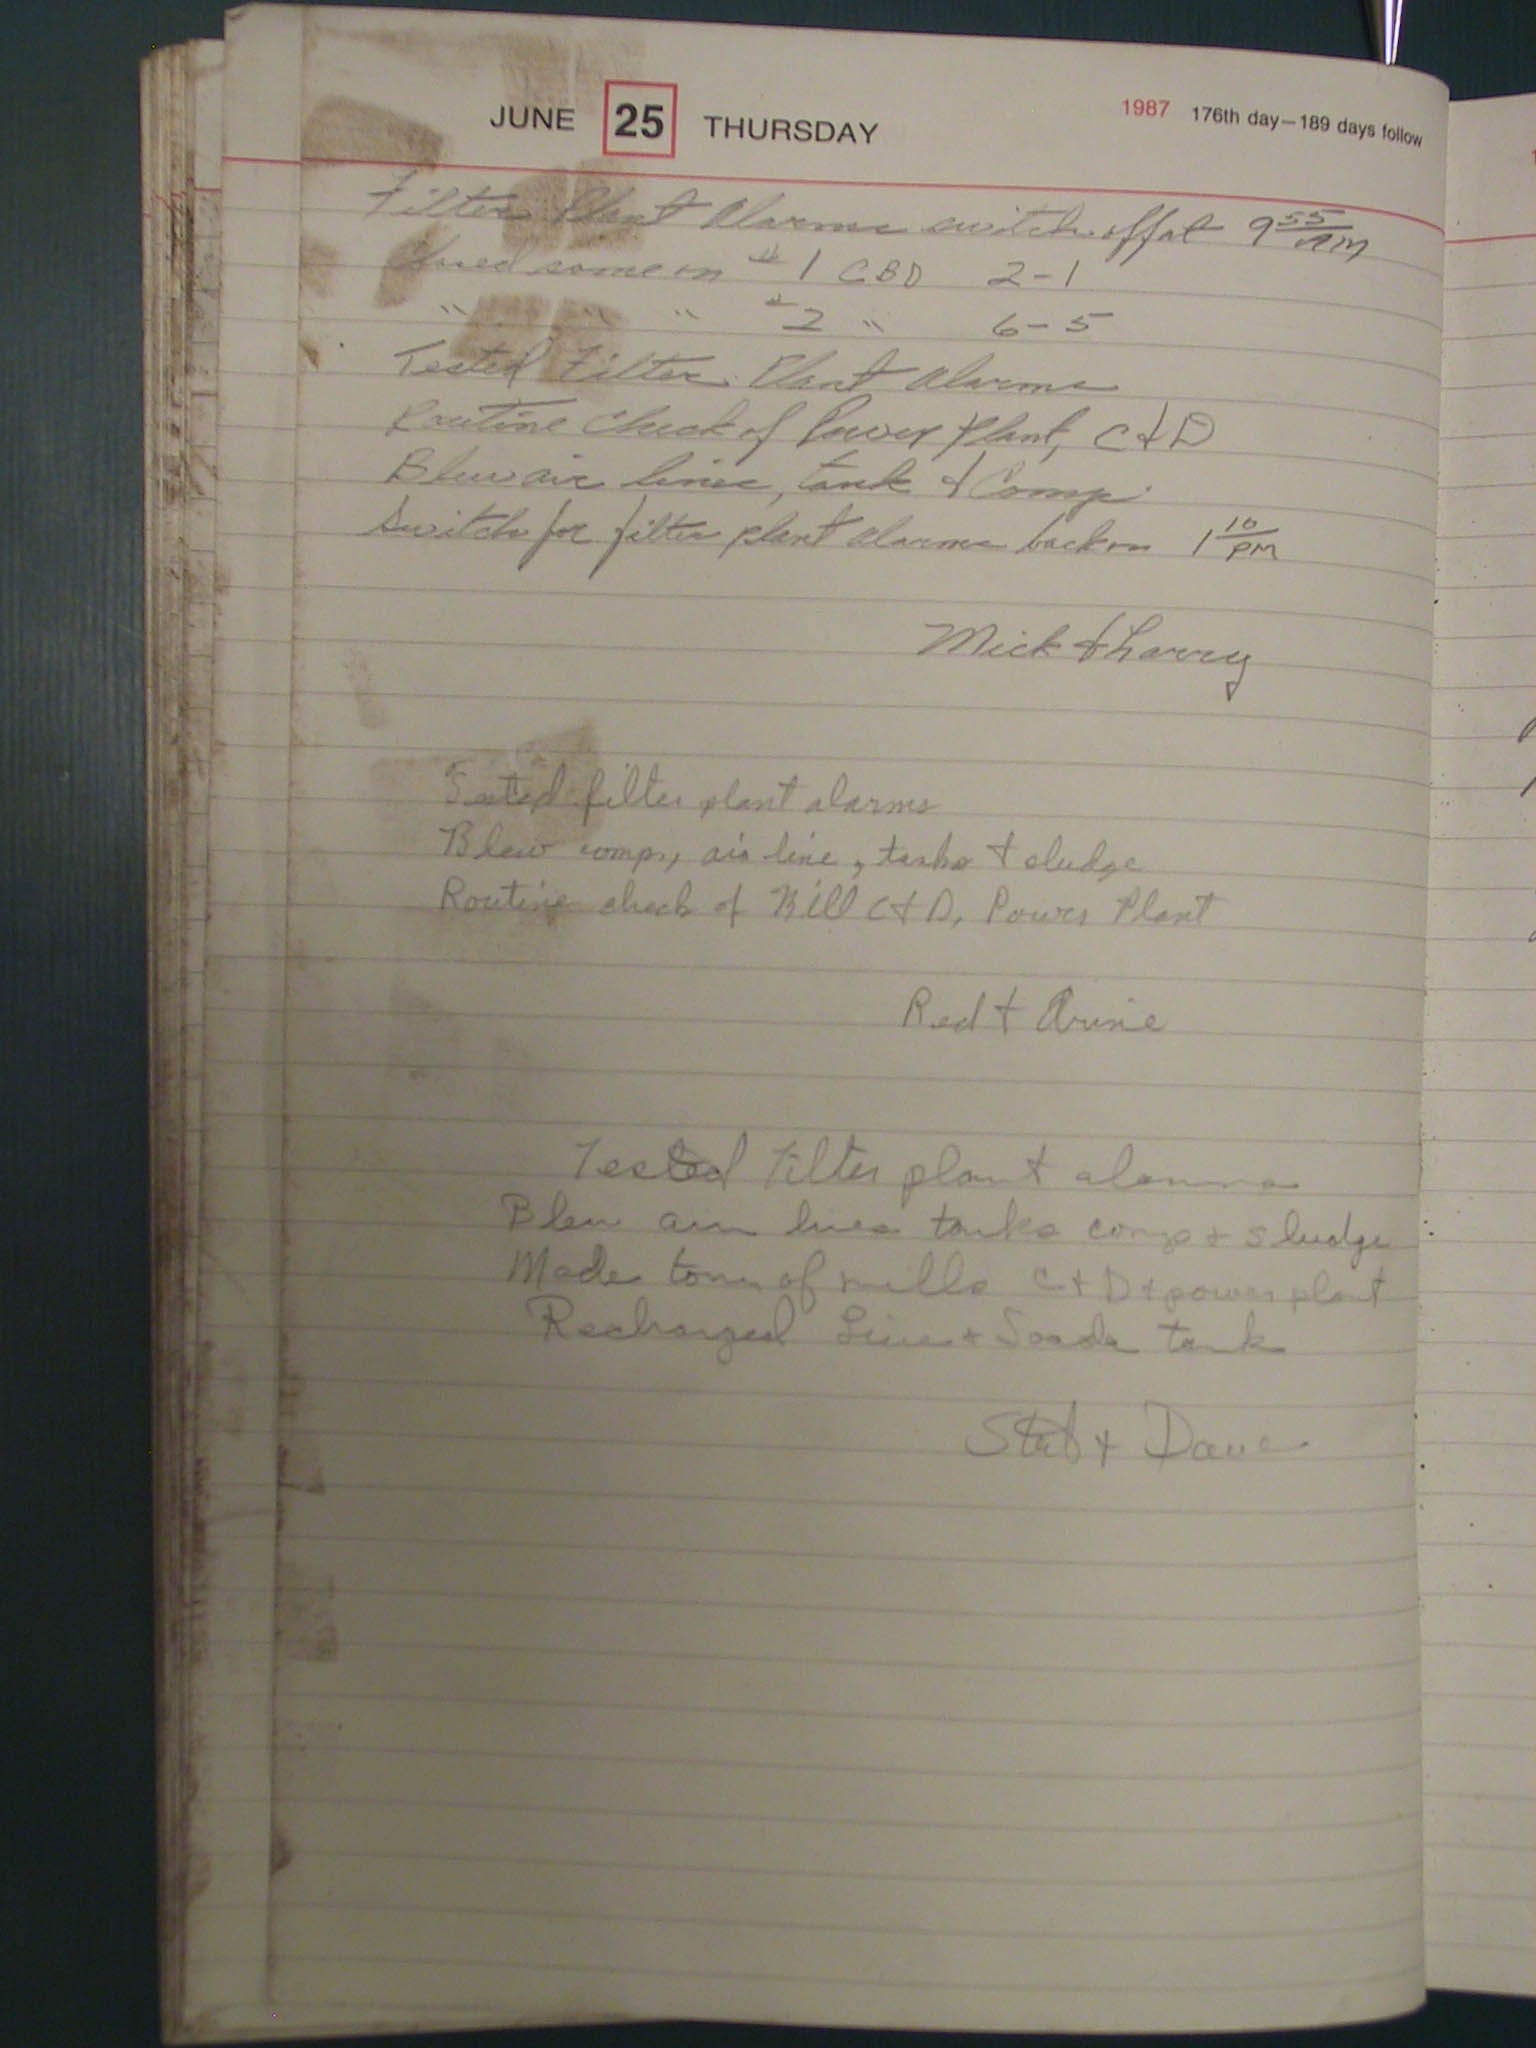 JUNE 25 THURSDAY 1987 176th day—189 days follow
Filter Plant Alarms switch off at 9 55 AM
Closed some on #1 CBD 2-1
" " " #2 " 6-5
Tested Filter Plant Alarms
Routine Check of Power Plant, C & D
Blew air lines, tank & Comp.
Switch for filter plant alarms back on 1 10 PM
Mick & Larry
Tested filter plant alarms
Blew comps, air line, tanks & sludge
Routine check of Mill C & D, Power Plant
Red +
Tested Filter plant alarms
Blew air lines tanks comps + sludge
Made tour of mills C + D + power plant
Recharged Lime + Soada tank
+ Dave